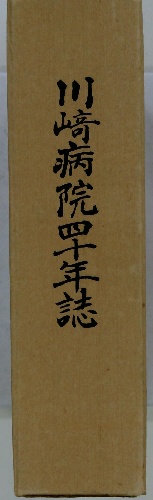 川﨑病院四十年誌